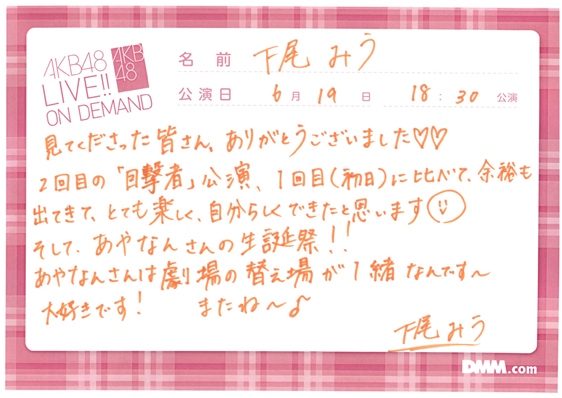 AKB48
LIVE!!
ON DEMAND
AKB
48
名 前 下尾 みう
公演日 6月 19日 18:30 公演
見てくださった皆さん、ありがとうございました♡♡
2回目の「目撃者」公演、1回目(初日)に比べて、余裕も
出てきて、とても楽しく、自分らしくできたと思います
そして、あやなんさんの生誕祭!!
あやなんさんは劇場の替え場が1緒なんです〜
大好きです! またね〜♪
下尾みう
DMM.com